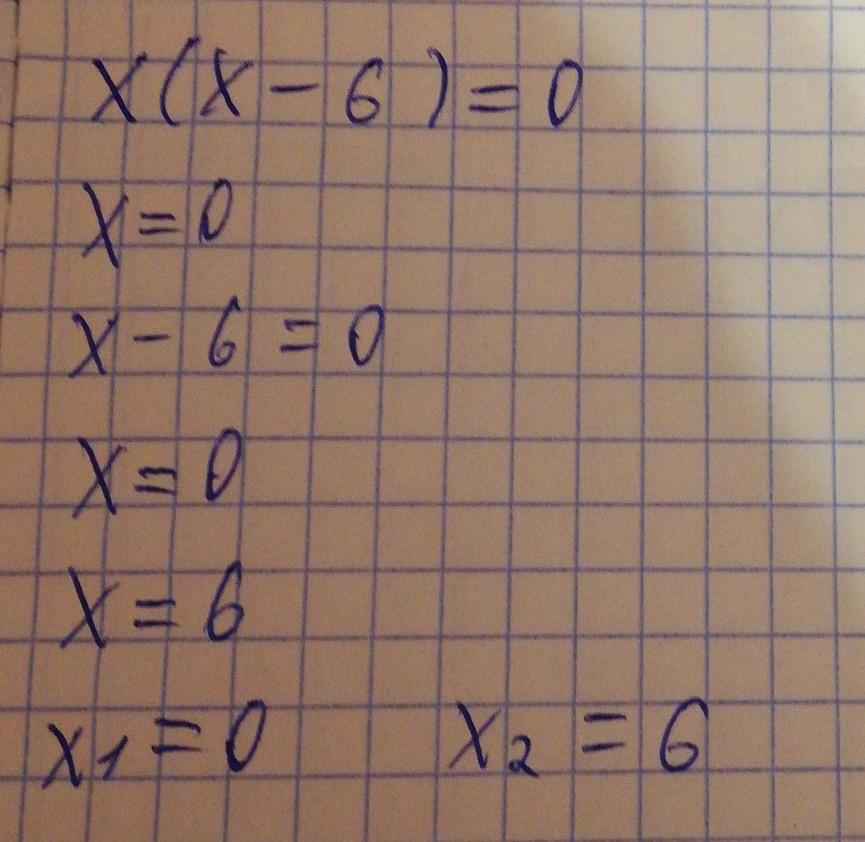 x(x - 6) = 0
x = 0
x - 6 = 0
x = 0
x = 6
x₁ = 0 x₂ = 6